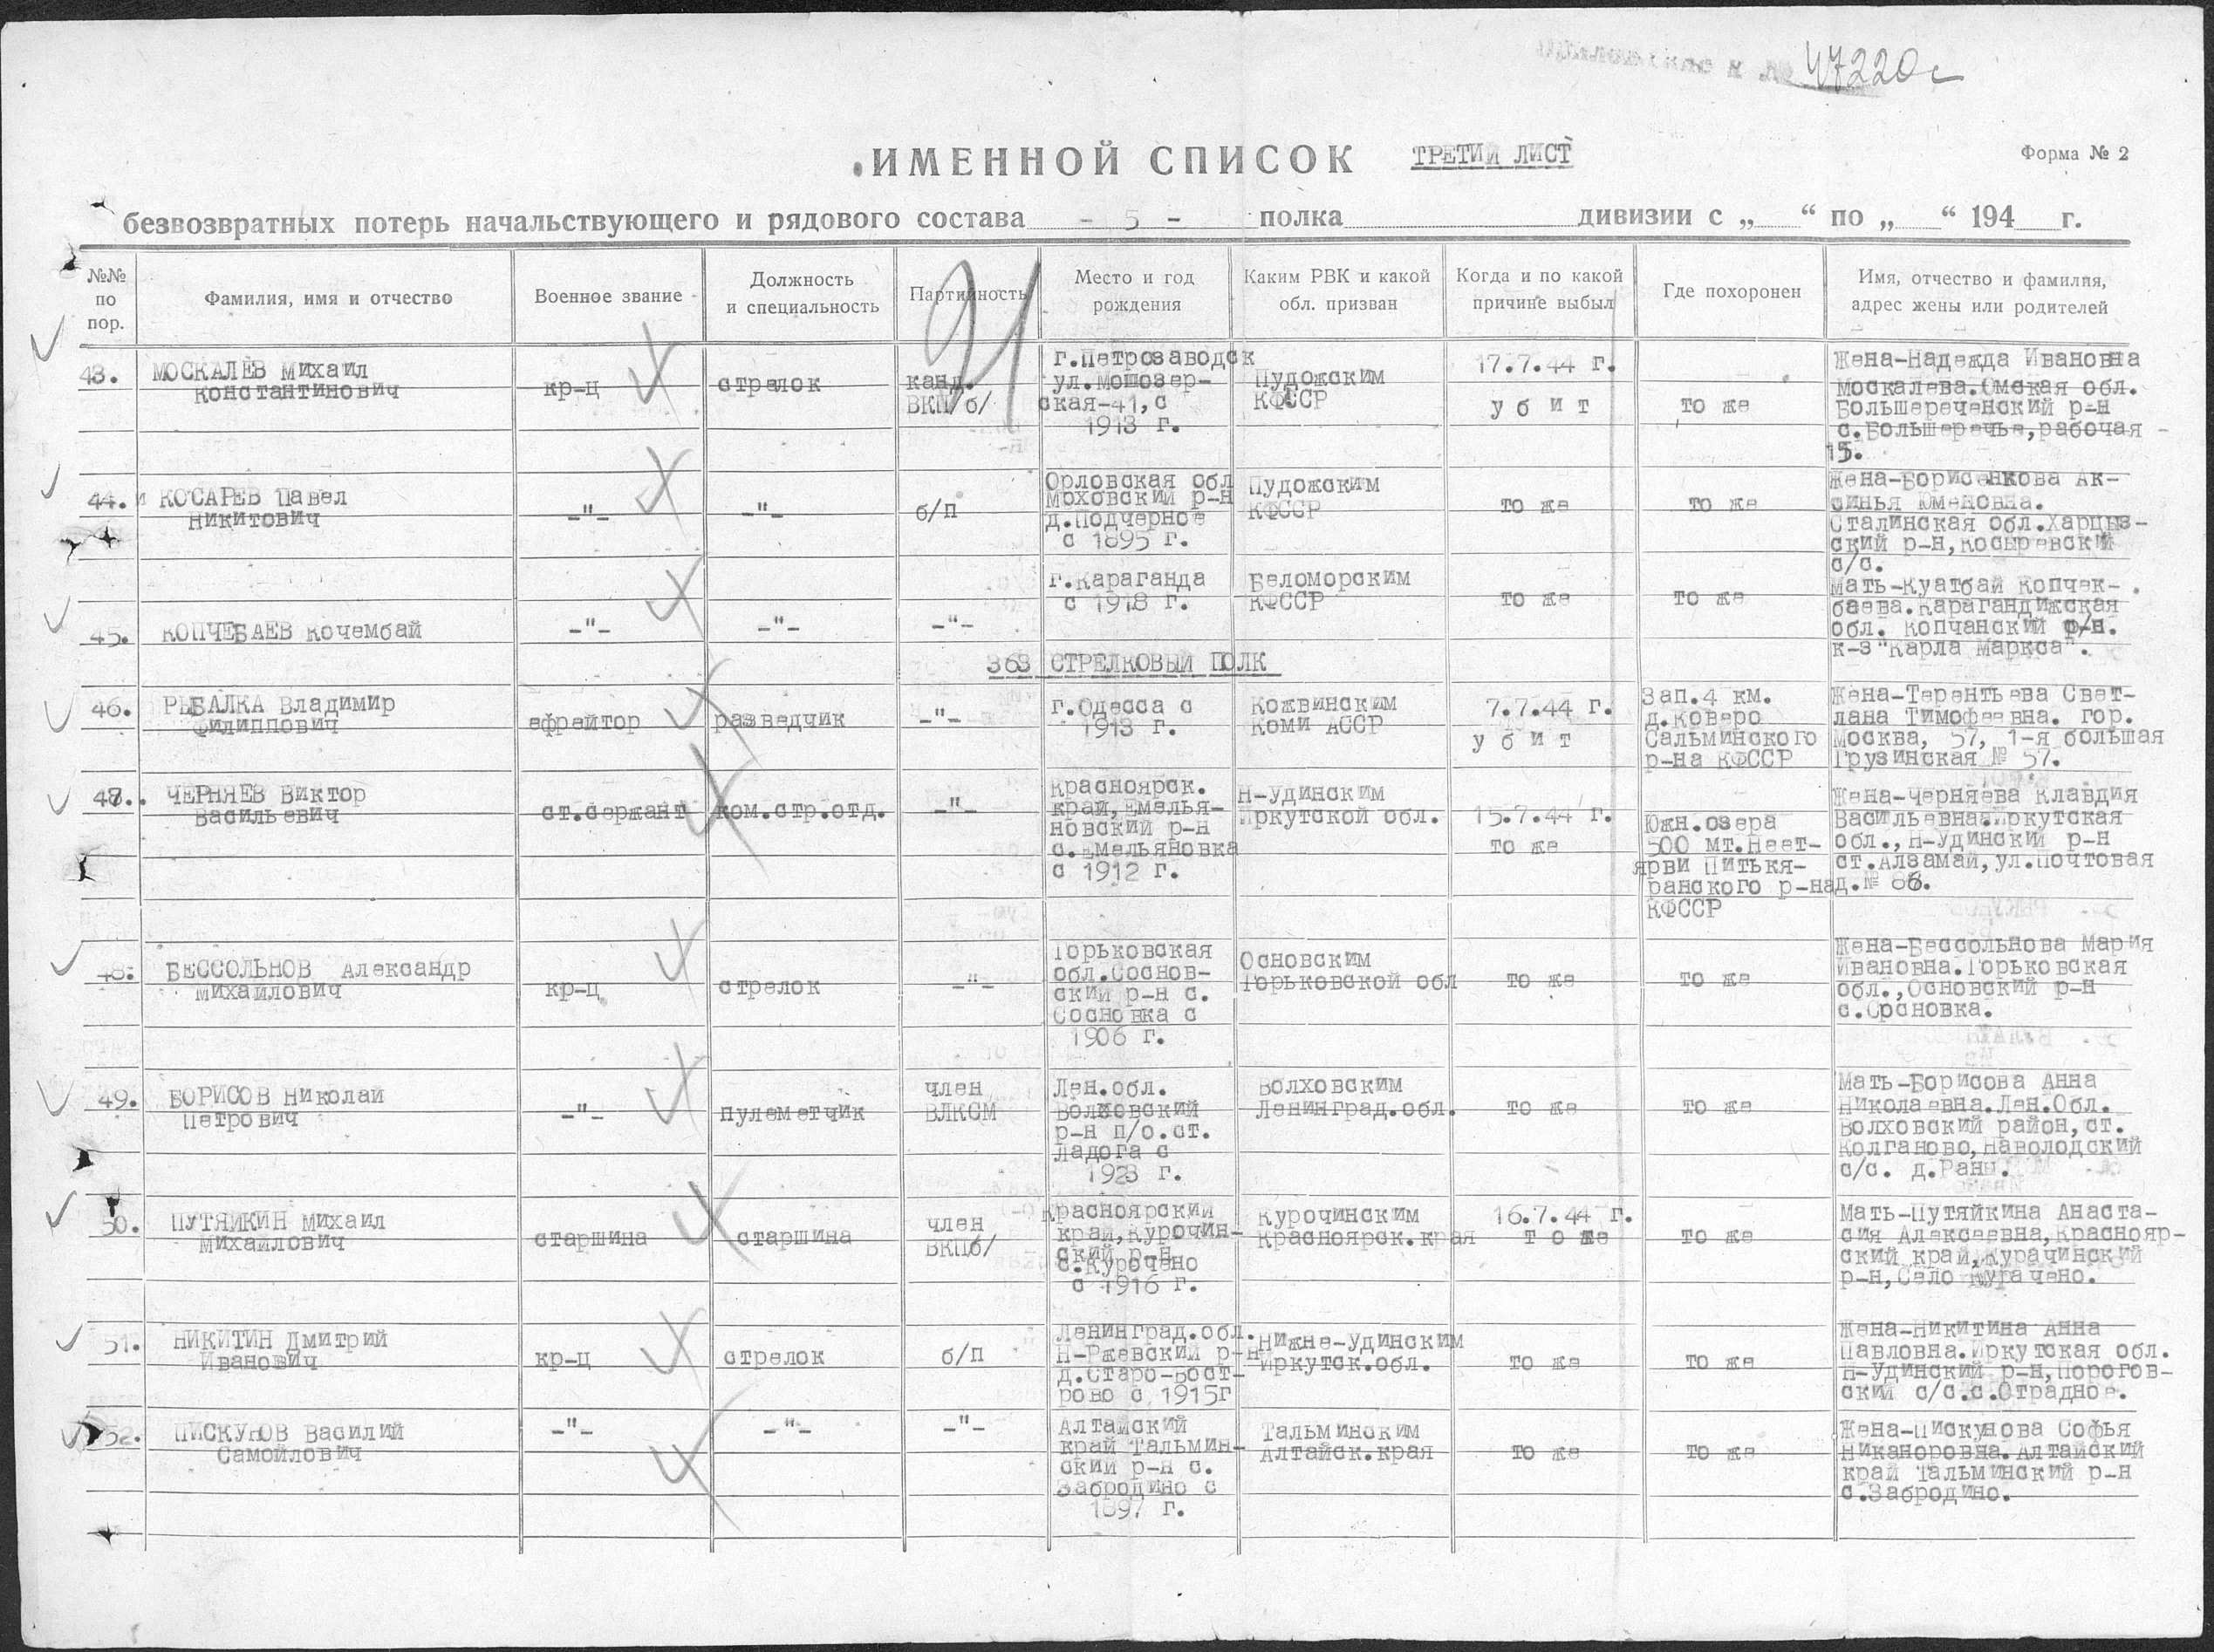 47220с
ИМЕННОЙ СПИСОК ТРЕТИЙ ЛИСТ
Форма № 2
безвозвратных потерь начальствующего и рядового состава - 5 - полка дивизии с „ “ по „ “ 194 г.
№№ по пор.
Фамилия, имя и отчество
Военное звание
Должность и специальность
Партийность
Место и год рождения
Каким РВК и какой обл. призван
Когда и по какой причине выбыл
Где похоронен
Имя, отчество и фамилия, адрес жены или родителей
43.
МОСКАЛЕВ Михаил
Константинович
кр-ц
стрелок
канд.
ВКП/б/
г.Петрозаводск
ул.Мошозер-
ская-41,с
1913 г.
Пудожским
КФССР
17.7.44 г.
у б и т
то же
Жена-Надежда Ивановна
Москалева.Омская обл.
Большереченский р-н
с.Большеречье,рабочая -
15.
44.
КОСАРЕВ Павел
Никитович
-"-
-"-
б/п
Орловская обл
Моховский р-н
д.Подчерное
с 1895 г.
Пудожским
КФССР
то же
то же
Жена-Борисенкова Ак-
синья Юменовна.
Сталинская обл.Харцыз-
ский р-н,Косыревский
с/с.
45.
КОПЧЕБАЕВ Кочембай
-"-
-"-
-"-
г.Караганда
с 1918 г.
Беломорским
КФССР
то же
то же
Мать-Куатбай Копчек-
баева.Карагандижская
обл. Копчанский р-н.
к-з "Карла Маркса".
363 СТРЕЛКОВЫЙ ПОЛК
46.
РЫБАЛКА Владимир
Филиппович
ефрейтор
разведчик
-"-
г.Одесса с
1913 г.
Кожвинским
Коми АССР
7.7.44 г.
у б и т
Зап.4 км.
д.Коверо
Сальминского
р-на КФССР
Жена-Терентьева Свет-
лана Тимофеевна. гор.
Москва, 57, 1-я большая
Грузинская № 57.
47.
ЧЕРНЯЕВ Виктор
Васильевич
ст.сержант
ком.стр.отд.
-"-
Красноярск.
край,Емелья-
новский р-н
с.Емельяновка
с 1912 г.
Н-Удинским
Иркутской обл.
15.7.44 г.
то же
Южн.озера
500 мт.Неет-
ярви Питькя-
ранского р-на
КФССР
Жена-Черняева Клавдия
Васильевна.Иркутская
обл.,Н-Удинский р-н
ст.Алзамай,ул.Почтовая
д.№ 86.
48.
БЕССОЛЬНОВ Александр
Михайлович
кр-ц
стрелок
-"-
Горьковская
обл.Соснов-
ский р-н с.
Сосновка с
1906 г.
Основским
Горьковской обл
то же
то же
Жена-Бессольнова Мария
Ивановна.Горьковская
обл.,Основский р-н
с.Сосновка.
49.
БОРИСОВ Николай
Петрович
-"-
пулеметчик
член
ВЛКСМ
Лен.обл.
Волховский
р-н п/о.ст.
Ладога с
1923 г.
Волховским
Ленинград.обл.
то же
то же
Мать-Борисова Анна
Николаевна.Лен.Обл.
Волховский район,ст.
Колганово,Наволодский
с/с. д.Раны.
50.
ПУТЯЙКИН Михаил
Михайлович
старшина
старшина
член
ВКПб/
Красноярский
край,Курочин-
ский р-н
с.Курочено
с 1916 г.
Курочинским
Красноярск.края
16.7.44 г.
т о же
то же
Мать-Путяйкина Анаста-
сия Алексеевна,Краснояр-
ский край,Курачинский
р-н,Село Курачено.
51.
НИКИТИН Дмитрий
Иванович
кр-ц
стрелок
б/п
Ленинград.обл.
Н-Ржевский р-н
д.Старо-Вост-
рово с 1915г
Нижне-Удинским
Иркутск.обл.
то же
то же
Жена-Никитина Анна
Павловна.Иркутская обл.
Н-Удинский р-н,Порогов-
ский с/с.с.Отрадное.
52.
ПИСКУНОВ Василий
Самойлович
-"-
-"-
-"-
Алтайский
край Тальмин-
ский р-н с.
Забродино с
1897 г.
Тальминским
Алтайск.края
то же
то же
Жена-Пискунова Софья
Никаноровна.Алтайский
край Тальминский р-н
с.Забродино.